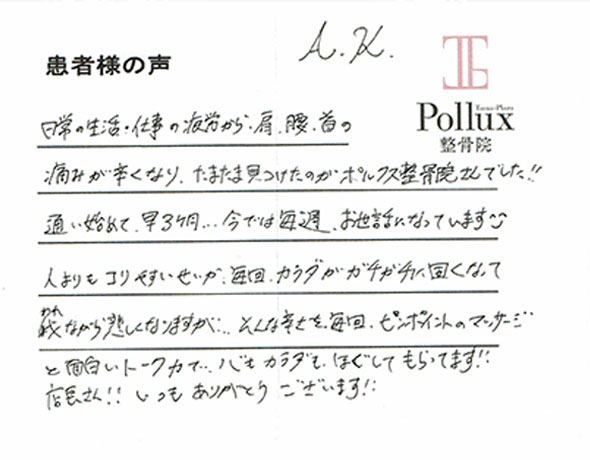 患者様の声
A.K.
Tarzo-Plaza
Pollux
整骨院
日常の生活・仕事の疲労から、肩、腰、首の
痛みが辛くなり、たまたま見つけたのがポルックス整骨院さんでした!!
通い始めて、早3ヶ月…今では毎週、お世話になっています
人よりもコリやすいせいか、毎回、カラダがガチガチに固くなって
我ながら悲しくなりますが… そんな辛さを、毎回、ピンポイントのマッサージ
われ
と面白いトーク力で… 心もカラダも、ほぐしてもらってます!!
店長さん!! いつも ありがとう ございます!!